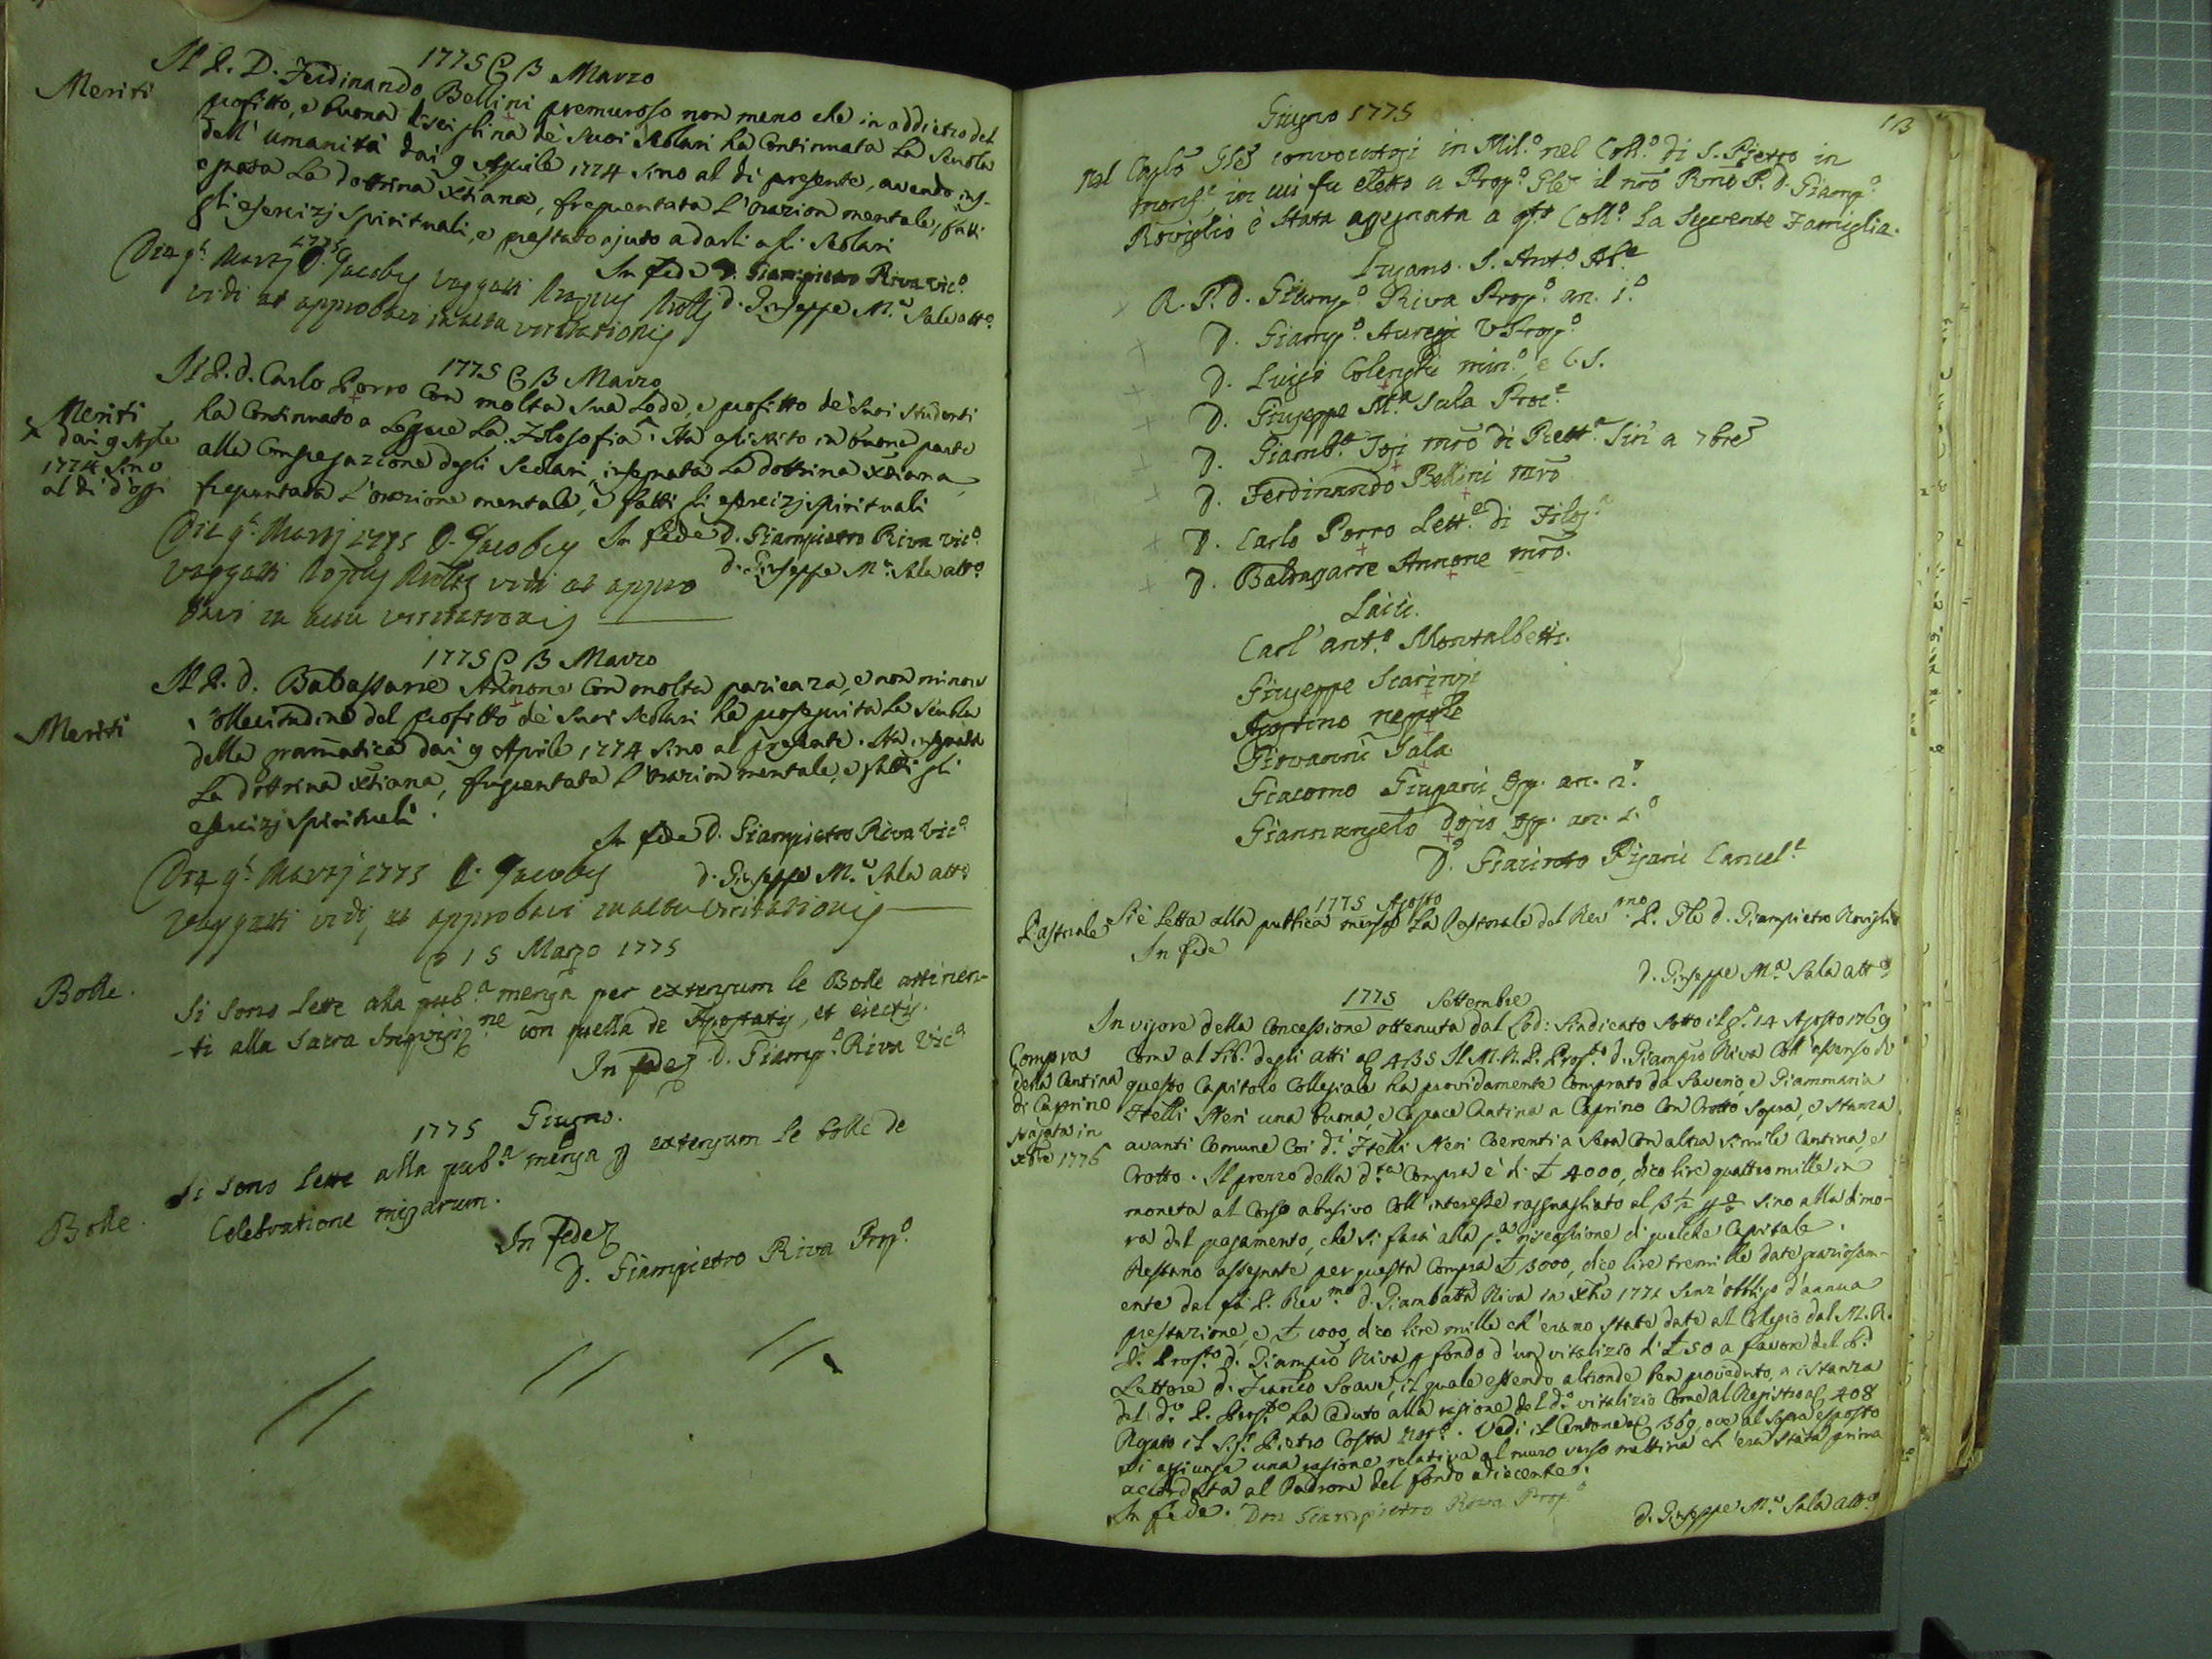 1775 @ 13 Marzo
Meriti
Il P. D. Ferdinando Bellini premuroso non meno che in addietro del
profitto, e buona disciplina de' suoi scolari ha continuata la scuola
dell' umanità dai 9 Aprile 1774 sino al dì presente, avendo inse-
gnata la dottrina xtiana, frequentata l'orazion mentale, fatti
gli esercizj spirituali, e prestato ajuto a darli agli scolari
In fede D. Giampietro Riva Vic.o
d. Giuseppe M.a Sala att.o
Die 9.a Martij 1775 D. Jacobus Vaggatti
vidi ac approbavi in actu visitationis
1775 @ 13 Marzo
Meriti
dai 9 Aple
1774 sino
al dì d'oggi
Il P. d. Carlo Porro con molta sua lode, e profitto de' suoi studenti
ha continuato a leggere la Filosofia. Ha assistito in buona parte
alla Congregazione degli scolari, insegnata la dottrina xtiana,
frequentata l'orazione mentale, e fatti gli esercizj spirituali
In fede D. Giampietro Riva Vic.o
d. Giuseppe M.a Sala att.o
Die 9.a Martij 1775 D. Jacobus
Vaggatti vidi ac appro
bavi in actu visitationis
1775 @ 13 Marzo
Meriti
Il P. d. Baldassarre Annone con molta pazienza, e non minore
sollecitudine del profitto de' suoi scolari ha proseguita la scuola
della gramatica dai 9 Aprile 1774 sino al presente. Ha insegnata
la dottrina xtiana, frequentata l'orazion mentale, e fatti gli
esercizj spirituali.
In fede D. Giampietro Riva Vic.o
d. Giuseppe M.a Sala att.o
Die 9.a Martij 1775 D. Jacobus
Vaggatti vidi, ac approbavi in actu visitationis
@ 15 Marzo 1775
Bolle.
Si sono lette alla pub.a mensa per extensum le Bolle attinen-
-ti alla Sacra Inquisiz.ne con quella de Apostatis, et eiectis.
In fede D. Giamp.o Riva Vic.o
1775 Giugno.
Bolle.
Si sono lette alla pub.a mensa p extensum le bolle de
Celebratione missarum.
In fede
D. Giampietro Riva Prop.o
13
Giugno 1775
Nel Caplo Gle convocatosi in Mil.o nel Coll.o di S. Pietro in
Monf.e in cui fu eletto a Prop.o Gle il nro Rmo P. d. Giamp.o
Roviglio è stata assegnata a qto Coll.o la seguente Famiglia.
Lugano. S. Ant.o Ab.e
R. P. d. Giamp.o Riva Prop.o an. 1.o
D. Giamp.o Auregi VProp.o
D. Luigi Colenghi min.o e C. S.
D. Giuseppe M.a Sala Proc.e
D. Giamb.a Togi mro di Rett.a sin a 7bre
D. Ferdinando Bellini mro
D. Carlo Porro Lett.e di Filos.a
D. Baldassarre Annone mro.
Laici.
Carl'ant.o Montalbetti.
Giuseppe Scaringi
Agostino
Giovanni Sala
Giacomo Giugani osp. an. 2.o
Giannangelo Dossio osp. an. 1.o
D. Giacinto Pisani Cancel.e
1775 Agosto
Pastorale
Si è letta alla pubblica mensa la Pastorale del Rev.mo P. Gle d. Giampietro Roviglio
In fede
d. Giuseppe M.a Sala att.o
1775 Settembre
Compra
della Cantina
di Caprino
pagata in
xbre 1776
In vigore della Concessione ottenuta dal Lod: Sindicato sotto il g. 14 Agosto 1769
come al lib. degli atti @ 435 Il M. R. P. Prop.to d. Giampio Riva coll' assenso di
questo Capitolo Collegiale ha providamente comprato da Saverio, e Giammaria
Ftelli Neri una buona, e capace Cantina a Caprino con Crotto sopra, e stanza
avanti comune coi d.i Ftelli Neri coerenti a sera con altra simile Cantina, e
Crotto. Il prezzo della d.ta Compra è di £ 4000, dico lire quattromille in
moneta al corso abusivo coll'interesse ragguagliato al 3 1/2 p % sino alla dimo-
ra del pagamento, che si farà alla p.a riscossione di qualche Capitale.
Restano assegnate per questa Compra £ 3000, dico lire tremille date graziosam-
ente dal fu P. Rev.mo d. Giambatta Riva in xbre 1772 senz'obbligo d'annua
prestazione, e £ 1000, dico lire mille ch'erano state date al Collegio dal M. R.
P. Prop.to d. Giampio Riva p fondo d'un vitalizio di £ 50 a favore del P.
Lettore d. Franco Soave, il quale essendo altronde ben proveduto, a istanza
del d.o P. Prop.to ha ceduto alla ragione del d.o vitalizio come al Registro @ 408
Rogato il Sig.r Pietro Costa Not.o. Vedi il @ 369, ove al sopra esposto
si aggiunge una ragione relativa al muro verso mattina ch'era stata prima
accordata al Padrone del fondo adiecente.
In fede. Don Giampietro Riva Prop.o
d. Giuseppe M.a Sala att.o